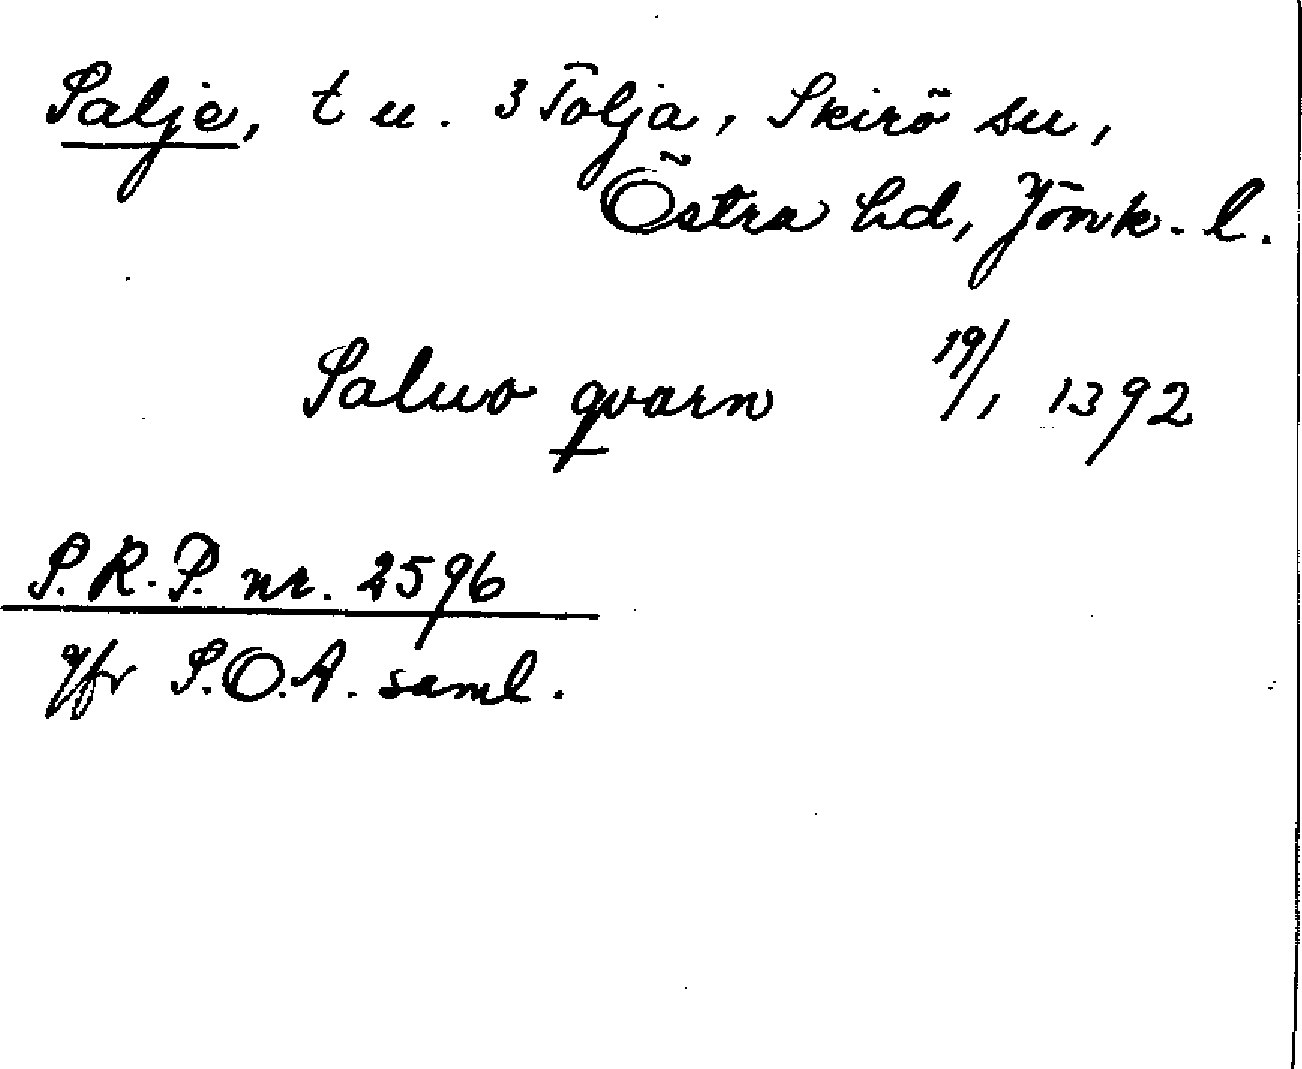 Salje, t u. 3 Tolja, Skirö su,
Östra hd, Jönk. l.
Saluo qvarn 19/1 1392
S.R.P. nr. 2596
Jfr S.O.A. saml.